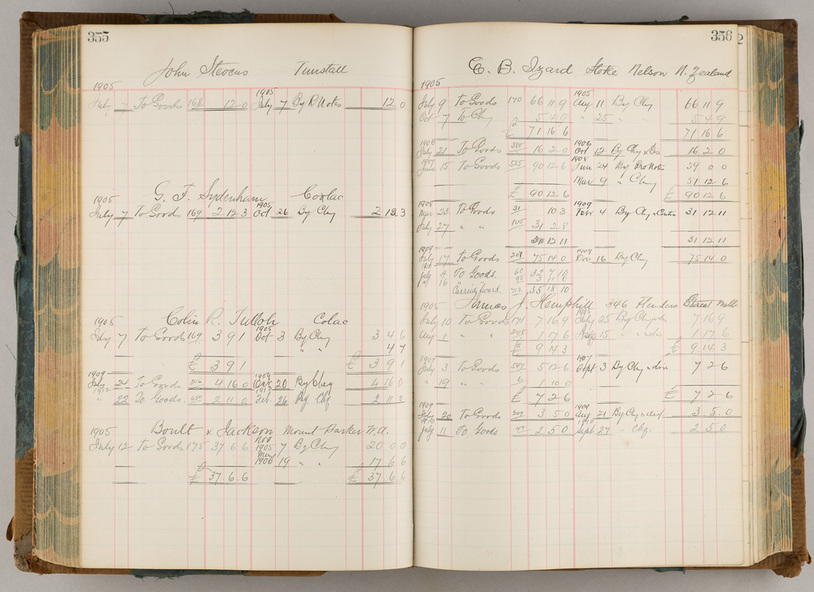 355
John Stevens Tunstall
1905 1905
July 7 To Goods 168 12 0 July 7 By P Notes 12 0
G. F. Sydenham Coolac
1905 1905
July 7 To Goods 169 2 13 3 Oct 26 By Chq 2 13 3
Colin R. Tulloh Colac
1905 1905
July 7 To Goods 169 3 9 1 Oct 3 By Chq 3 4 6
" " 4 7
£ 3 9 1 £ 3 9 1
1909 1909
July 24 To Goods 4 16 0 20 By Chq 4 16 0
22 To Goods 2 11 0 Feb 26 By Chq
1905 Boult & Jackson Mount Barker W.A.
July 12 To Goods 175 37 6 6 Nov 1905 7 By Chq 20 0 0
1906 19 " " 17 6 6
£ 37 6 6 £ 37 6 6
356
2
C. B. Izard Stoke Nelson N. Zealand
1905 1905
July 9 To Goods 170 66 11 9 Aug 11 By Chq 66 11 9
Oct 7 To Chq 2 5 4 9 " 25 " " 5 4 9
£ 71 16 6 71 16 6
1906 1906
July 21 To Goods 16 2 0 Oct 12 By Chq & Dis 16 2 0
June 15 To Goods 525 90 12 6 24 By Pro Notes 39 0 0
Mar 9 " Chq 51 12 6
£ 90 12 6 £ 90 12 6
23 To Goods 31 10 3 Feb 4 By Chq 31 12 11
July 27 " " 105 31 2 8
31 12 11 31 12 11
1909 1909
July 17 To Goods 75 14 0 Dec 16 By Chq 75 14 0
July 4 To Goods
16
35 18 10
1905 J. Hemphill 346 Flinders Street Melb
July 10 To Goods 171 7 16 9 25 By Chq 7 16 9
Aug 1 " " 1 17 6 15 " 1 17 6
£ 9 14 3 £ 9 14 3
1907 1907
July 3 To Goods 5 12 6 Sept 3 By Chq & dis 7 2 6
" 19 " " 1 10 0
£ 7 2 6 £ 7 2 6
1909 1909
July 20 To Goods 3 5 0 Aug 21 By Chq 3 5 0
July 11 To Goods 2 5 0 Sept 27 " Chq. 2 5 0